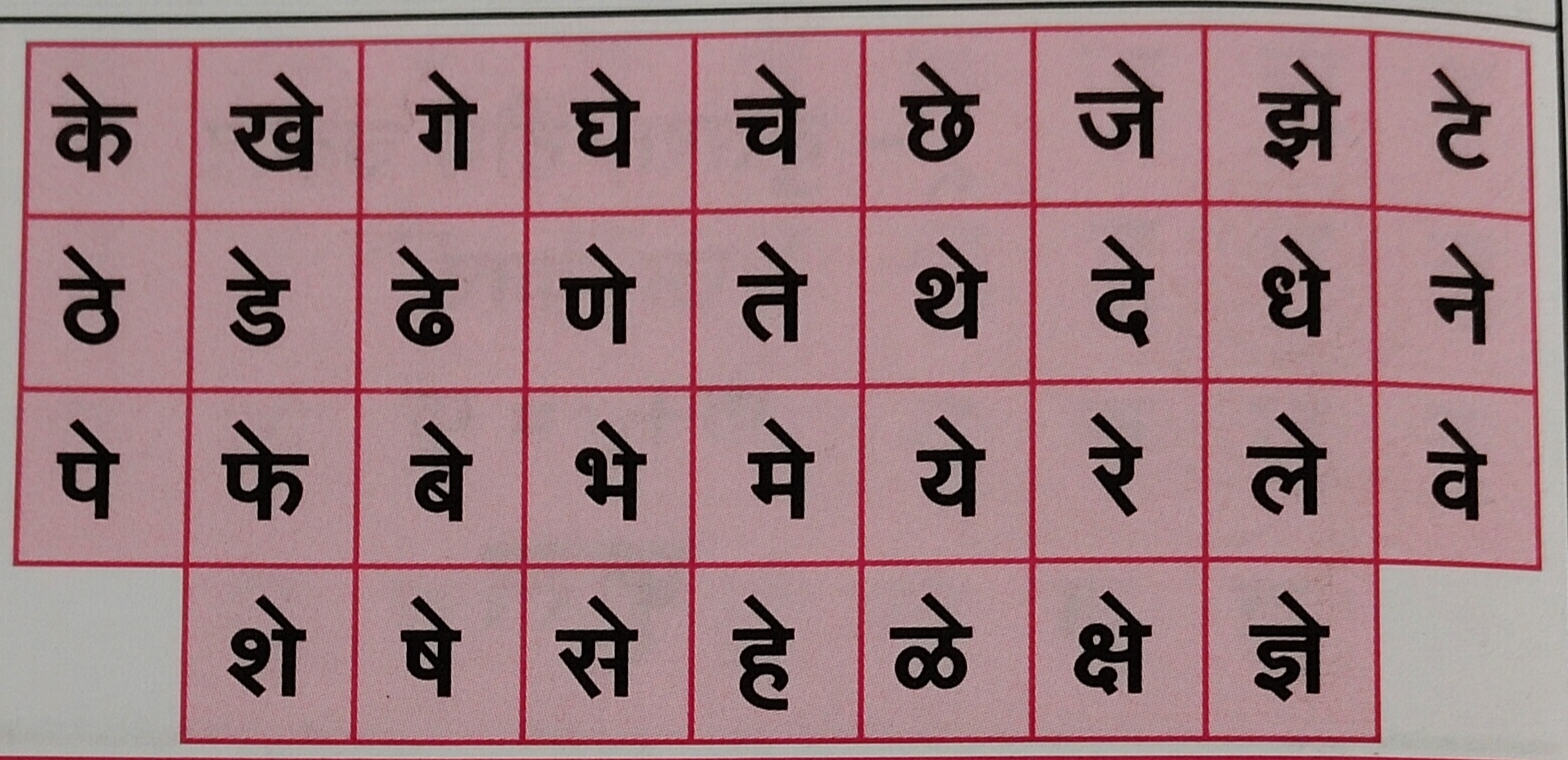 के खे गे घे चे छे जे झे टे
ठे डे ढे णे ते थे दे धे ने
पे फे बे भे मे ये रे ले वे
शे षे से हे ळे क्षे ज्ञे